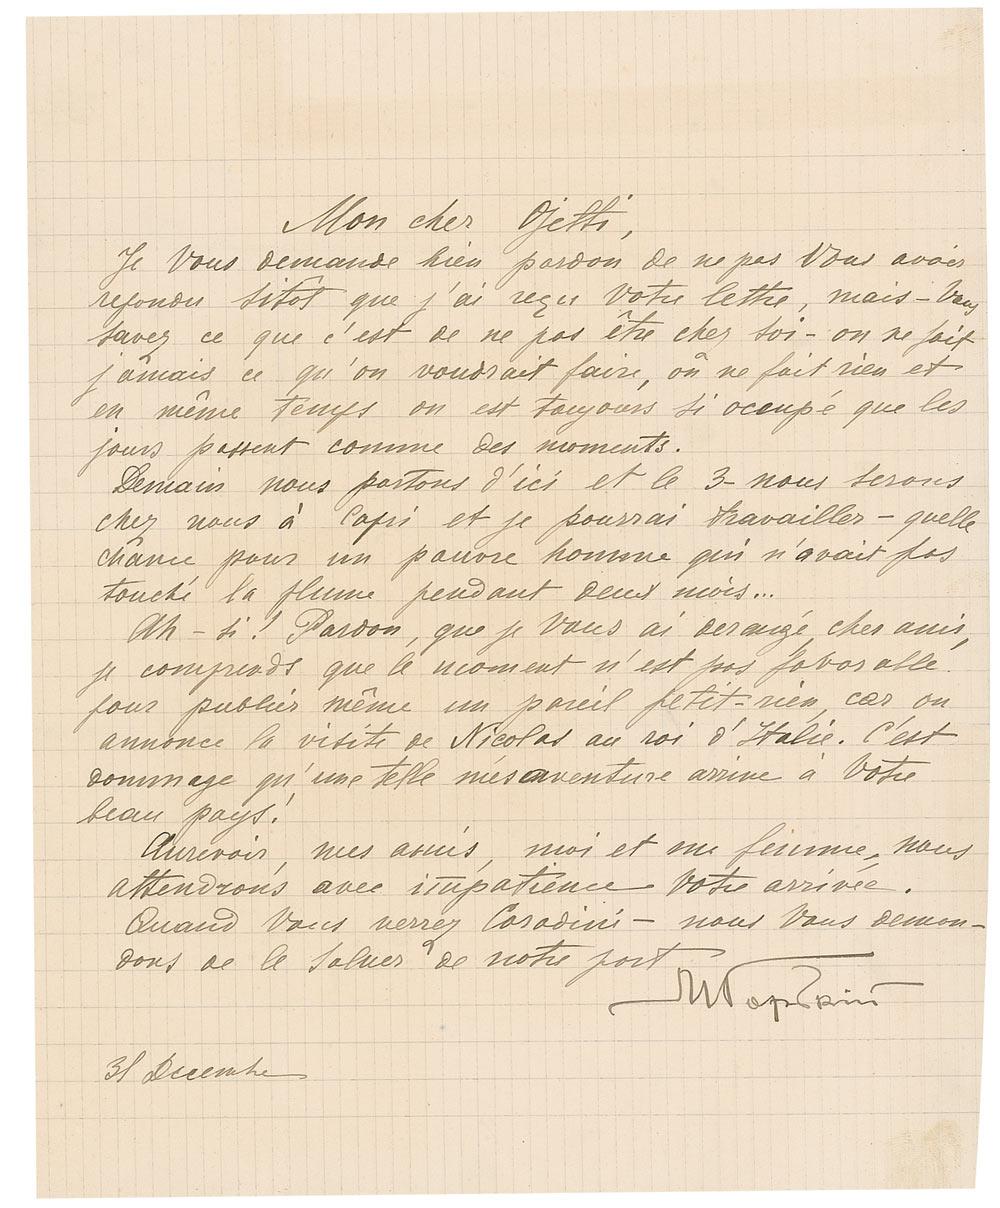 Mon cher Ojetti,
Je Vous demande bien pardon de ne pas Vous avoir
repondu sitôt que j'ai reçu Votre lettre, mais – Vous
savez ce que c'est de ne pas être chez soi – on ne fait
jâmais ce qu'on voudrait faire, on ne fait rien et
en même temps on est toujours si occupé que les
jours passent comme des moments.
Demain nous partons d'ici et le 3 – nous serons
chez nous à Capri et je pourrai travailler – quelle
chânce pour un pauvre homme qui n'avait pas
touché la plume pendant deux mois...
Ah – si! Pardon, que je Vous ai derangé, cher ami,
je comprends que le moment n'est pas favorable
pour publier même un pareil petit-rien, car on
annonce la visite de Nicolas au roi d'Italie. C'est
dommage qu'une telle mésaventure arrive à Votre
beau pays!
Aurevoir, mes amis, moi et ma femme, nous
attendrons avec impatience Votre arrivée.
Quand Vous verrez Coradini – nous Vous deman-
dons de le saluer de notre part
М Горький
31 Decembre